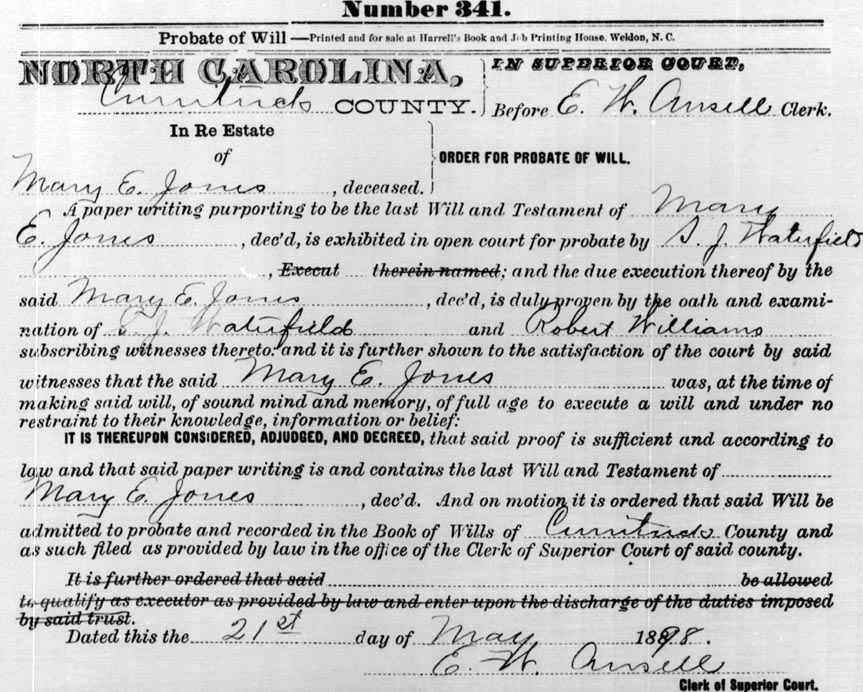 Number 341.
Probate of Will—Printed and for sale at Harrell's Book and Job Printing House, Weldon, N. C.
NORTH CAROLINA, IN SUPERIOR COURT,
Currituck COUNTY. Before E. W. Ansell Clerk.
In Re Estate
of
ORDER FOR PROBATE OF WILL.
Mary E. Jones, deceased.
A paper writing purporting to be the last Will and Testament of Mary
E. Jones, dec'd, is exhibited in open court for probate by S. J. Waterfield
, Execut therein named; and the due execution thereof by the
said Mary E. Jones, dec'd, is duly proven by the oath and exami-
nation of S. J. Waterfield and Robert Williams
subscribing witnesses thereto: and it is further shown to the satisfaction of the court by said
witnesses that the said Mary E. Jones was, at the time of
making said will, of sound mind and memory, of full age to execute a will and under no
restraint to their knowledge, information or belief:
IT IS THEREUPON CONSIDERED, ADJUDGED, AND DECREED, that said proof is sufficient and according to
law and that said paper writing is and contains the last Will and Testament of
Mary E. Jones, dec'd. And on motion it is ordered that said Will be
admitted to probate and recorded in the Book of Wills of Currituck County and
as such filed as provided by law in the office of the Clerk of Superior Court of said county.
It is further ordered that said be allowed
to qualify as executor as provided by law and enter upon the discharge of the duties imposed
by said trust.
Dated this the 21st day of May 1898.
E. W. Ansell
Clerk of Superior Court.